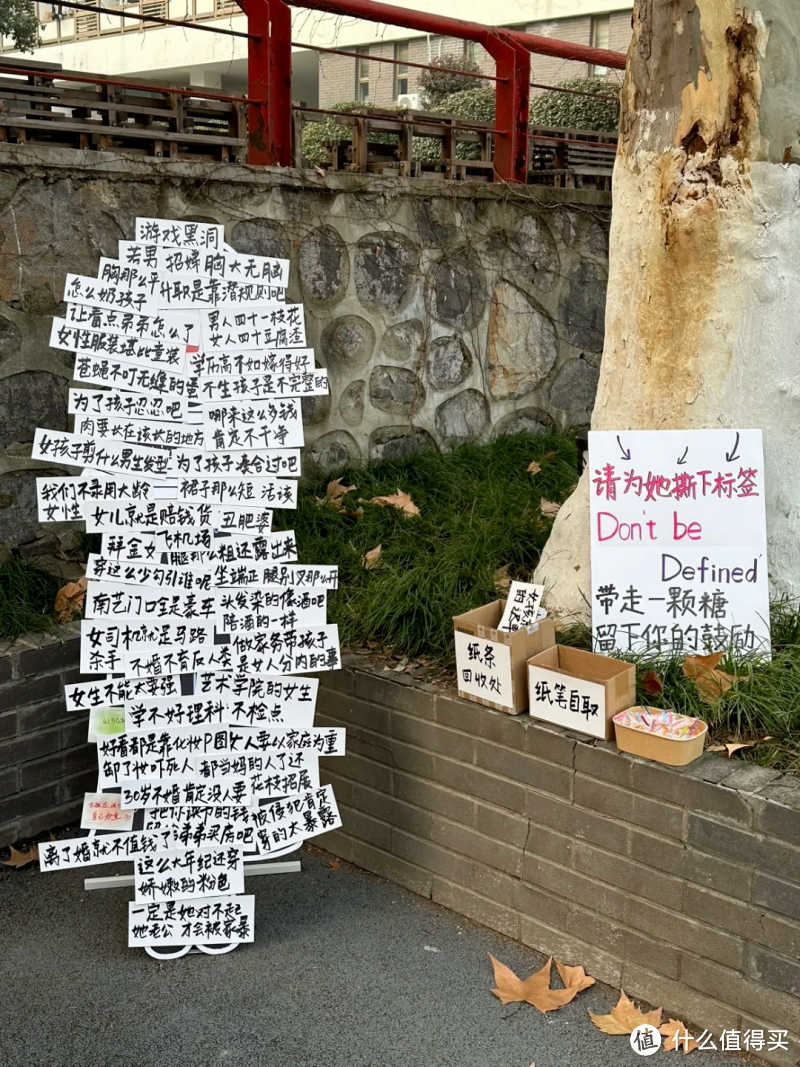 游戏黑洞
若男 招娣 胸大无脑
胸那么平 升职是靠潜规则吧
怎么奶孩子
让着点弟弟怎么了 男人四十一枝花
女性服装堪比童装 女人四十豆腐渣
学历高不如嫁得好
苍蝇不叮无缝的蛋 不生孩子是不完整的
为了孩子忍忍吧 哪来这么多钱
肉要长在该长的地方 肯定不干净
女孩子剪什么男生发型 为了孩子凑合过吧
我们不录用大龄 裙子那么短 活该
女性 女儿就是赔钱货 丑肥婆
拜金女 飞机场 腿那么粗还露出来
穿这么少勾引谁呢 坐端正 腿别叉那么开
南艺门口全是豪车 头发染的像酒吧
陪酒的一样
女司机就是马路 做家务带孩子
杀手 不婚不育反人类 是女人分内的
女生不能太要强 艺术学院的女生
学不好理科 不检点
好看都是靠化妆P图 女人要以家庭为重
卸了妆吓死人 都当妈的人了还
30岁不婚肯定没人要 花枝招展
被侵犯肯定
离了婚就不值钱了 弟弟买房吧 穿的太暴露
这么大年纪还穿
娇嫩的粉色
一定是她对不起
她老公 才会被家暴
请为她撕下标签
Don't be
Defined
带走一颗糖
留下你的鼓励
纸条
回收处
纸笔自取
值 什么值得买